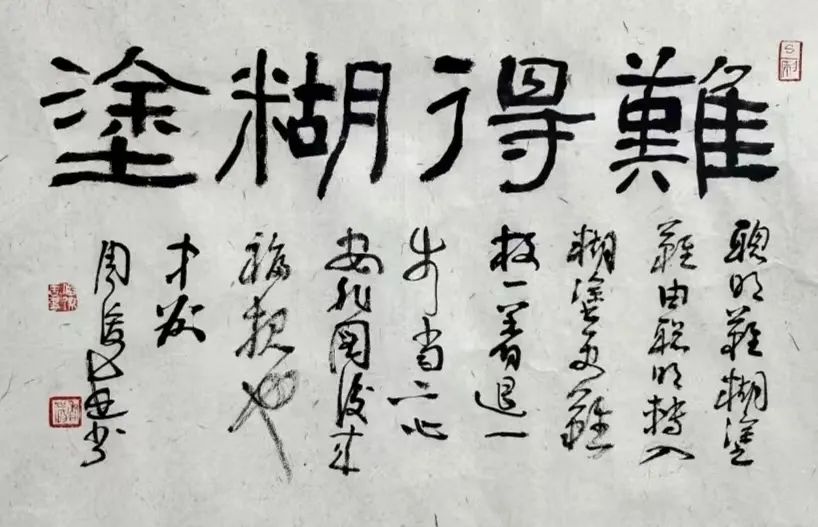 難得糊塗
聰明難糊塗
難由聰明轉入
糊塗更難
放一著退一
步當下心
安非圖後來
福報也
周 書